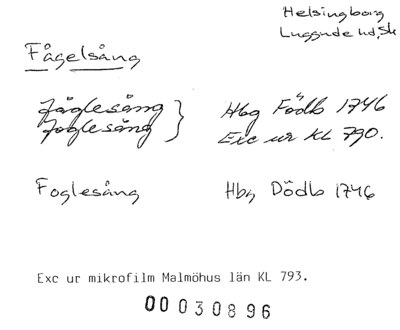 Helsingborg
Luggude hd, Sk
Fågelsång
Fåglesång } Hbg Födb 1746
Foglesång Exc ur KL 790.
Foglesång Hbg Dödb 1746
Exc ur mikrofilm Malmöhus län KL 793.
00030896